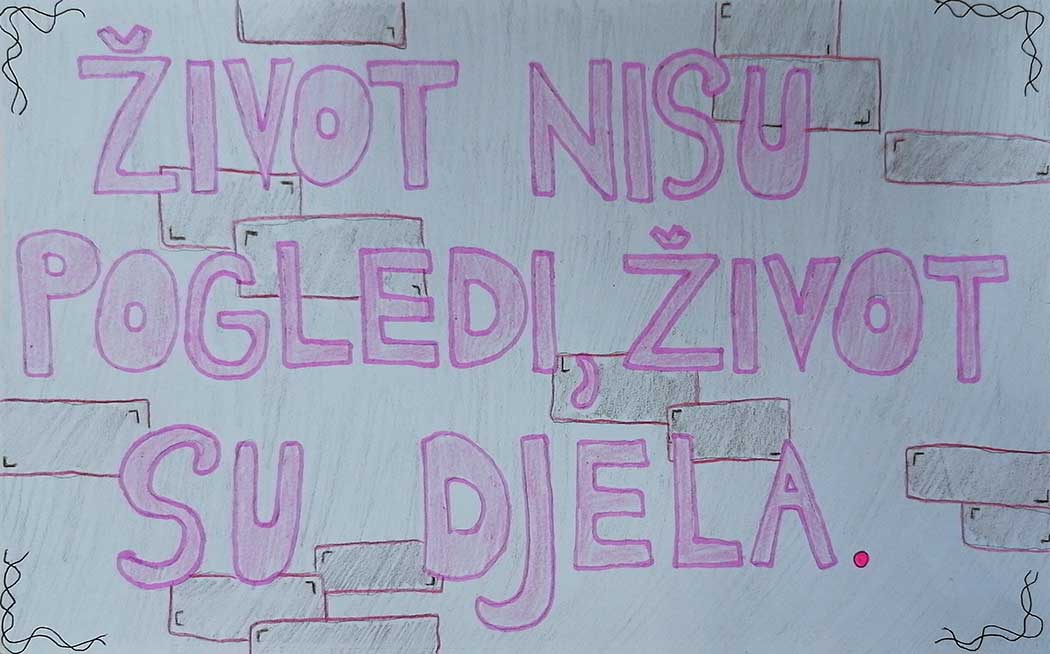 ŽIVOT NISU
POGLEDI, ŽIVOT
SU DJELA.